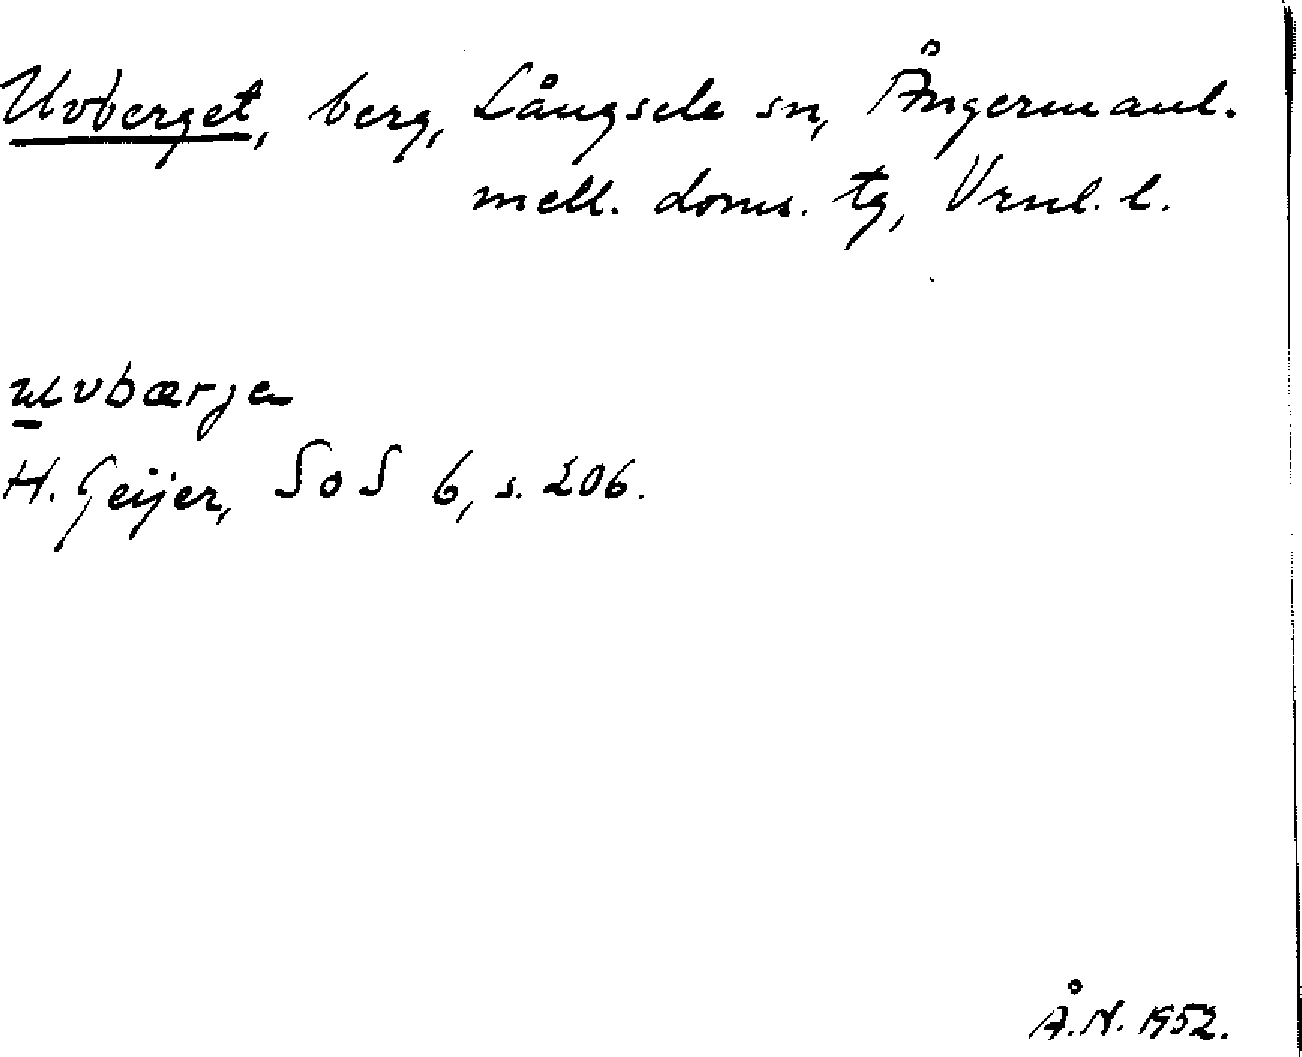 Uvberget, berg, Långsele sn, Ångermanl.
mell. doms. tg, Vrnl. l.
uvbærjɐ
H. Geijer, SoS 6, s. 206.
Å.N. 1952.